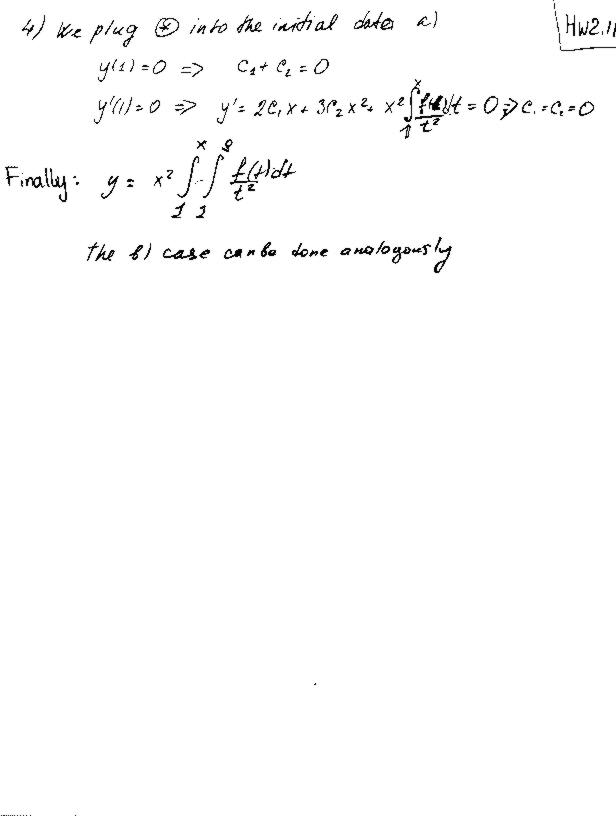 4) We plug ⊛ into the initial data a)
HW2.11
y(1)=0 => C₁+C₂=0
y'(1)=0 => y'=2C₁x+3C₂x²+x²∫₁ˣ f(t)/t² dt=0 => C₁=C₂=0
Finally: y = x² ∫₁ˣ ∫₁ˢ f(t)/t² dt
the b) case can be done analogously